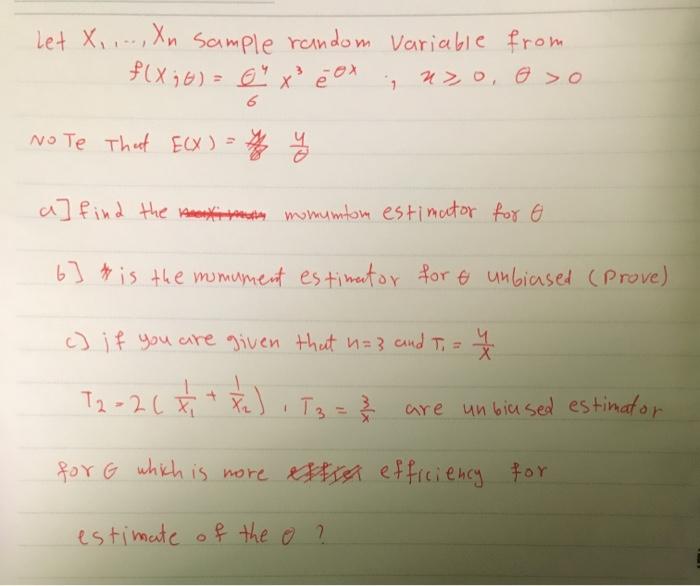 Let X₁, ..., Xn sample random variable from
f(x;θ) = θ⁴/6 x³ e^-θx , x ≥ 0, θ > 0
NoTe That E(X) = 4/θ
a] find the momumtom estimator for θ
b] is the mumument estimator for θ unbiased (prove)
c) if you are given that n=3 and T₁ = 4/x
T₂ = 2(1/X₁ + 1/X₂), T₃ = 3/x are unbiused estimator
for θ which is more efficiency for
estimate of the θ ?